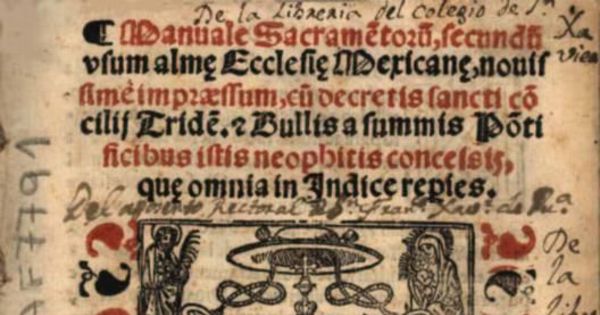 De la Libreria del colegio de Sn. Xa
vier
¶ Manuale Sacramẽtorũ, secundũ
vsum almę Ecclesię Mexicanę, nouis
simè impræssum, cũ decretis sancti cõ
cilij Tridẽ. ⁊ Bullis a summis Põti
ficibus istis neophitis concessis,
quę omnia in Indice repies.
De la
AF7791